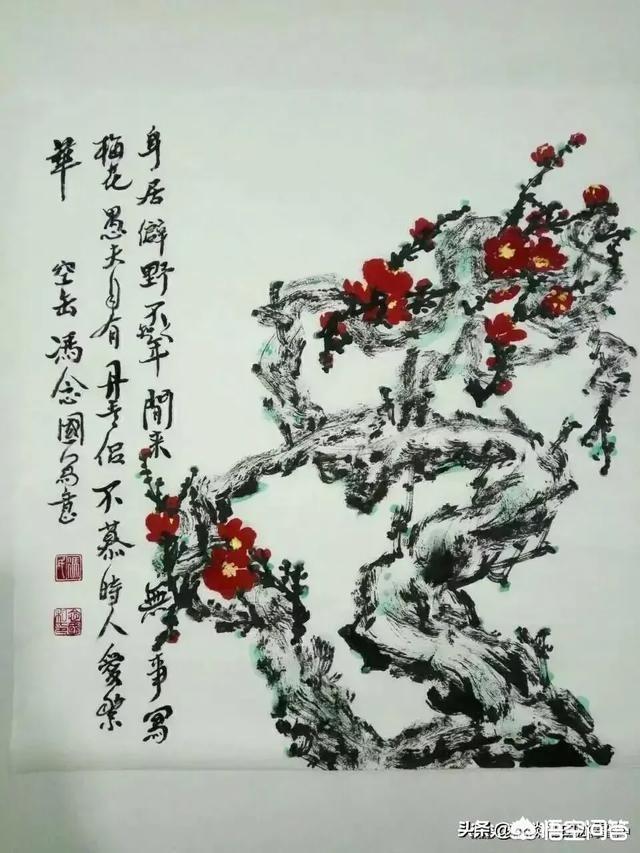 身居僻野不年閒来無事寫
梅花愚夫自有丹青侣不慕時人愛繁
華 馮念國寫意
头条@
悟空问答